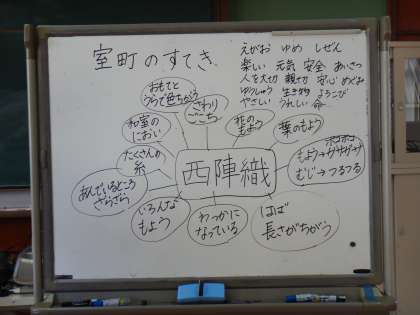 室町のすてき
えがお ゆめ しぜん
楽しい 元気 安全 あいさつ
人を大切 親切 安心 めぐみ
ゆうしゅう 生き物 よろこび
やさしい うれしい 命
おもてと
うらで色ちがう
さわり
ごこち
もよう
葉のもよう
和室の
におい
たくさんの
糸
西陣織
ボコボコ
もよう→ザザザザ
むじ→つるつる
あんでいるところ
ざらざら
いろんな
もよう
わっかに
なっている
はば
長さがちがう